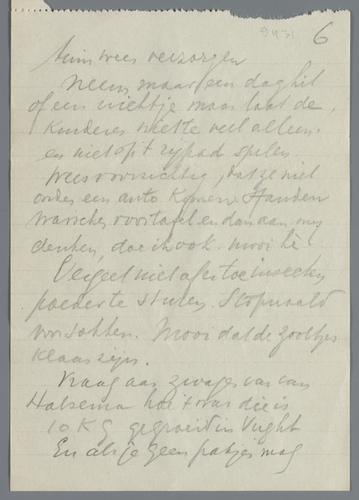 9431 6
tuin wees verzorgen
Neem maar een daghit
of een nichtje maar laat de
Kinderen niet te veel alleen
en niet op 't zypad spelen.
Wees voorzichtig, dat ze niet
onder een auto komen. Handen
wasschen voor tafel en dan aan my
denken, doe ik ook. mooi hè
Vergeet niet af en toe insecten
poeder te sturen. Stopnaald
voor sokken. Mooi dat de zooltjes
klaar zijn.
Vraag aan zwager van van
Halsema hoe 't was die is
10 KG gegroeid in Vught
En als je geen pakjes mag